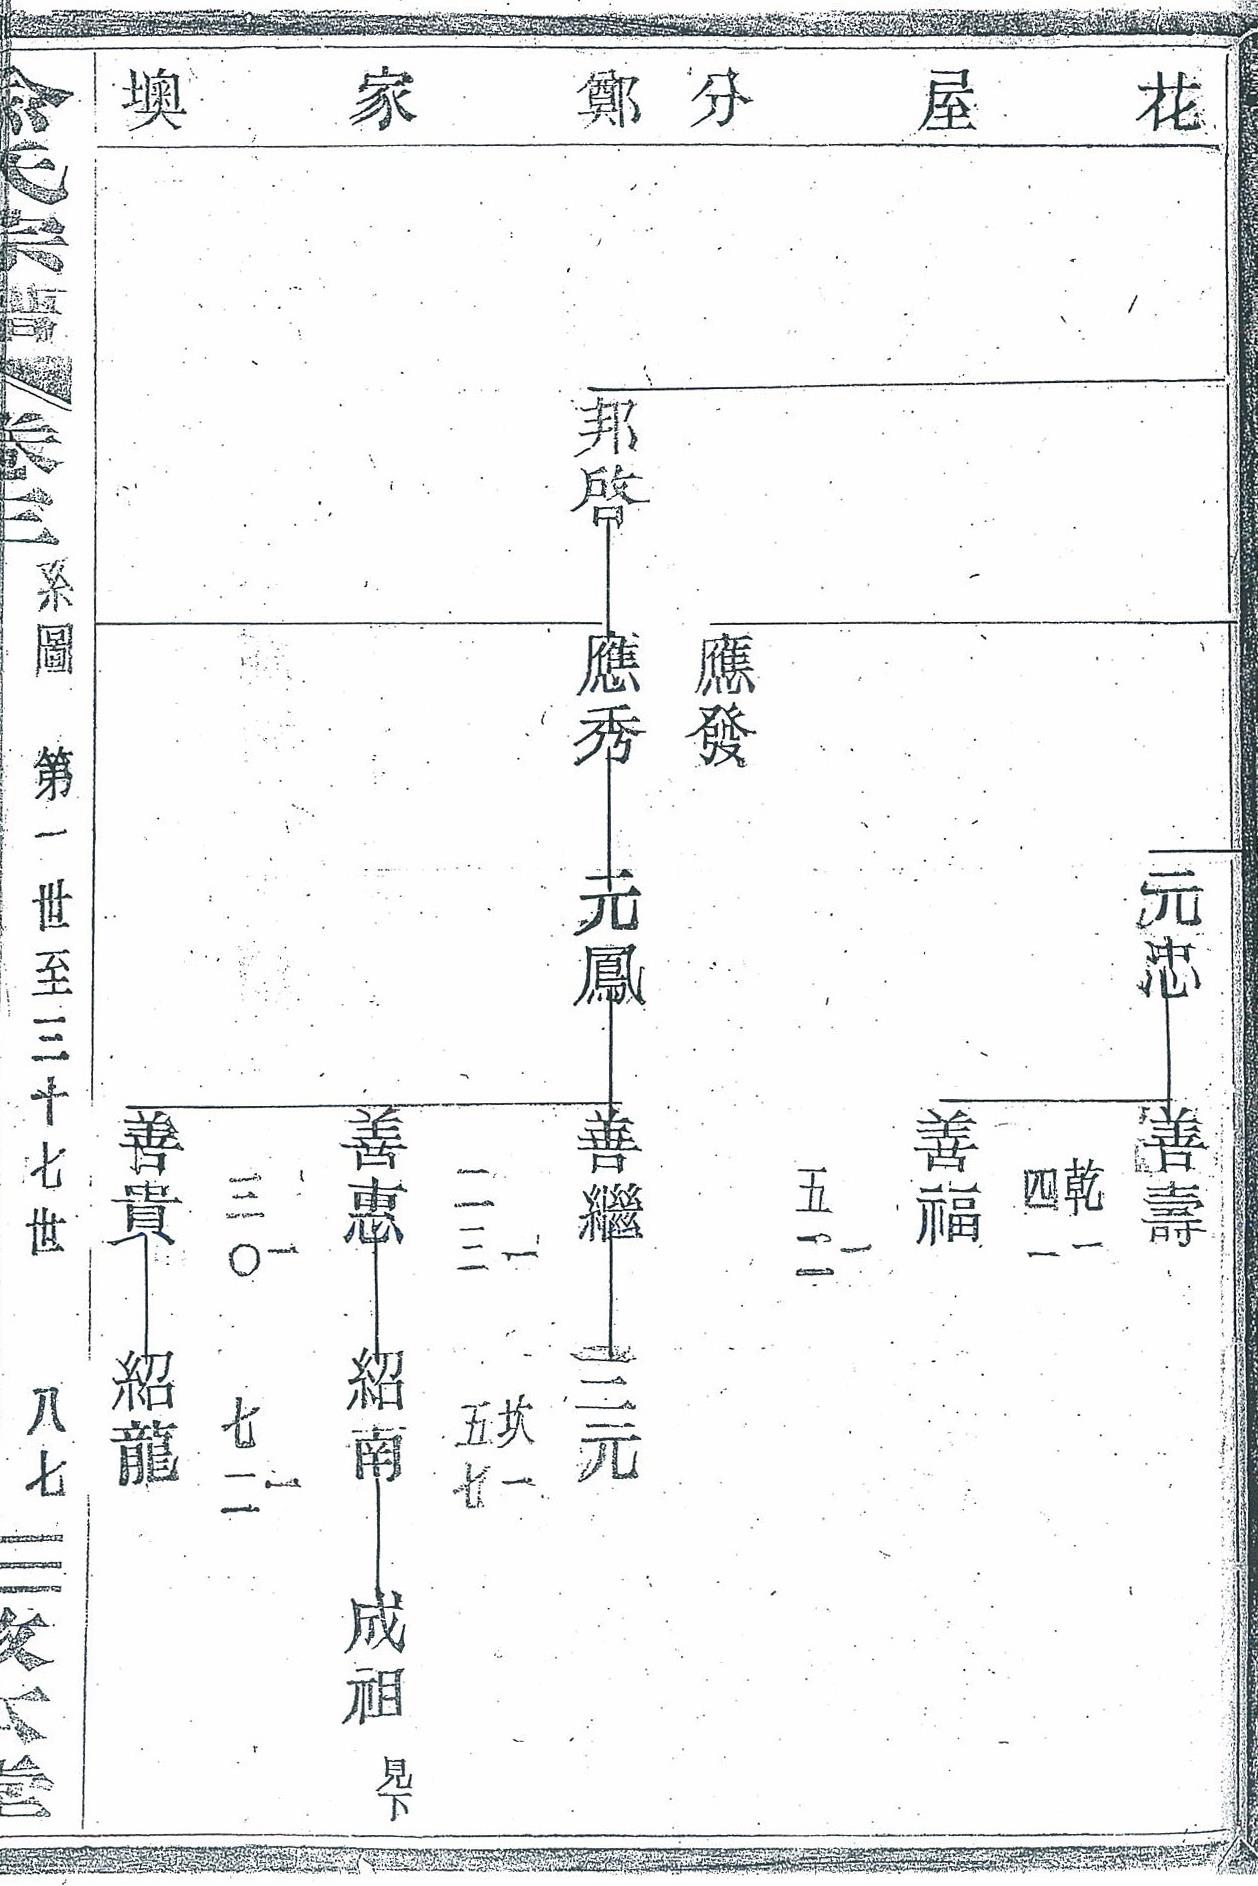 花屋分鄭家墺
元忠
善壽
乾一
四一
善福
一
五二
應發
邦啓
應秀
元鳳
善繼
三元
坎一
五七
一
二三
善惠
紹南
成祖
見下
一
三〇
一
七二
善貴
紹龍
宗譜
卷三
系圖 第一世至三十七世 八七